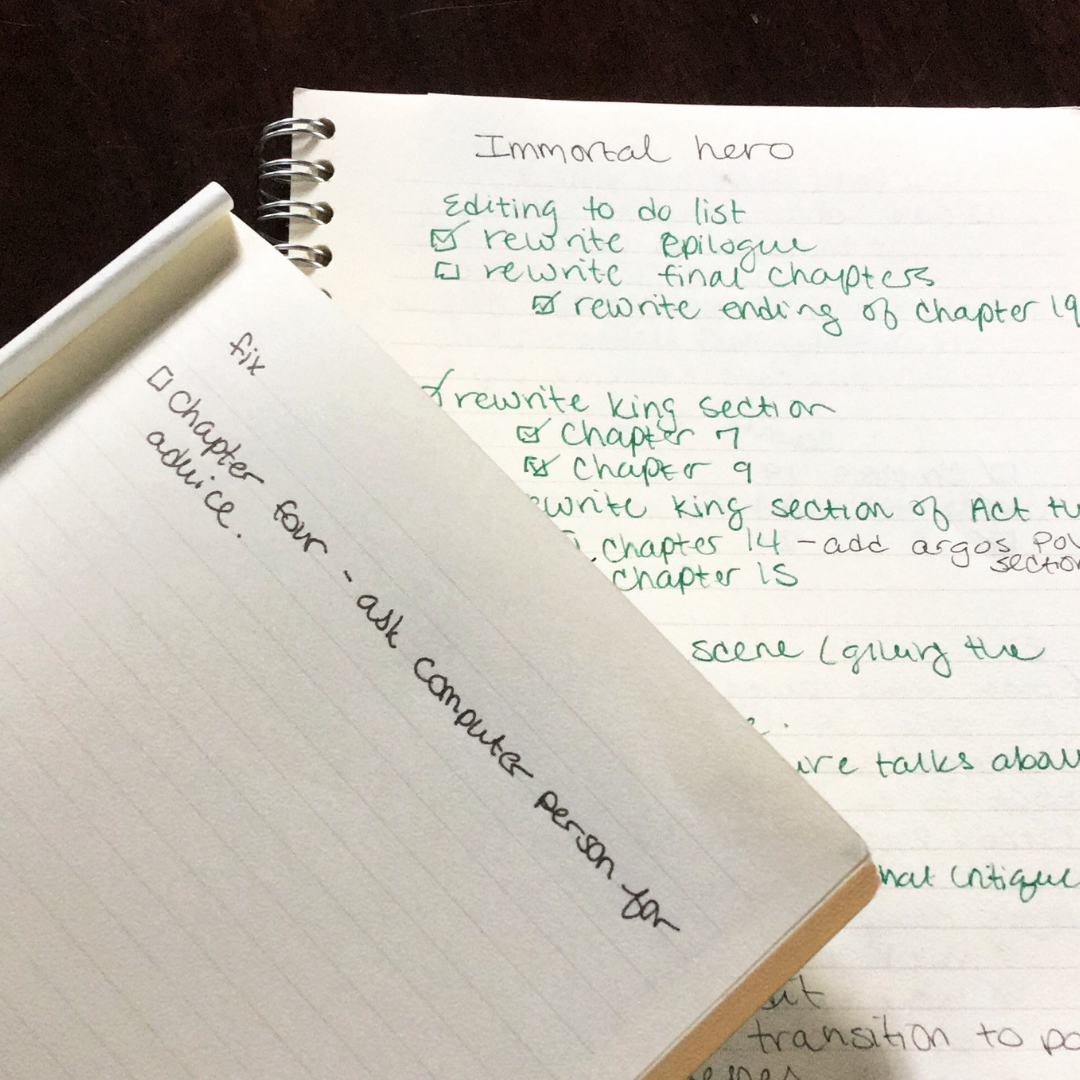 Immortal hero
Editing to do list
☑ rewrite epilogue
☐ rewrite final chapters
☑ rewrite ending of chapter 19
rewrite king section
☑ chapter 7
☑ chapter 9
ewrite king section of Act
chapter 14 - add argos pov
section
chapter 15
scene ( the
talks about
critique
transition to
fix
☐ chapter four - ask computer person for
advice.